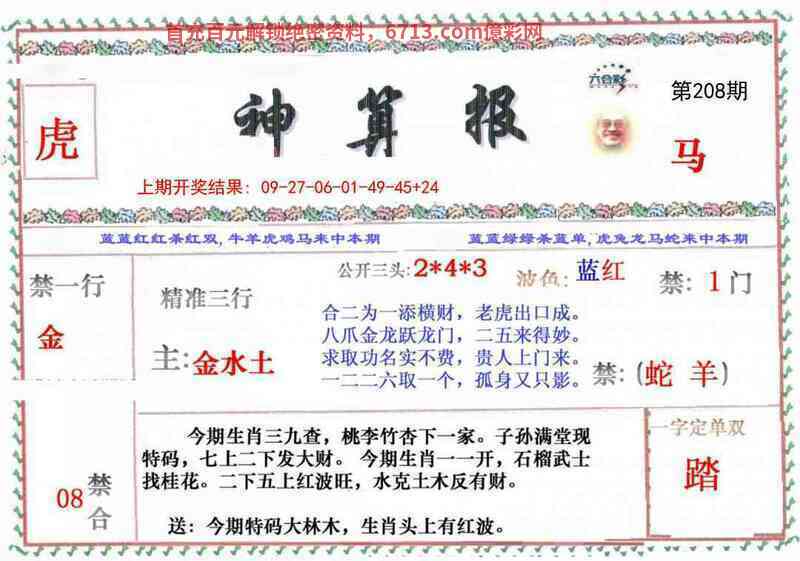 首充百元解锁绝密资料，6713.com億彩网
六合彩
第208期
虎
神算报
马
上期开奖结果：09-27-06-01-49-45+24
蓝蓝红红杀红双,牛羊虎鸡马来中本期
蓝蓝绿绿杀蓝单,虎兔龙马蛇来中本期
禁一行
金
精准三行
主:金水土
公开三头:2*4*3
波色:蓝红
禁:1门
合二为一添横财，老虎出口成。
八爪金龙跃龙门，二五来得妙。
求取功名实不费，贵人上门来。
一二二六取一个，孤身又只影。
禁:(蛇 羊)
08
禁合
今期生肖三九查，桃李竹杏下一家。子孙满堂现
特码，七上二下发大财。 今期生肖一一开，石榴武士
找桂花。二下五上红波旺，水克土木反有财。
送：今期特码大林木，生肖头上有红波。
一字定单双
踏